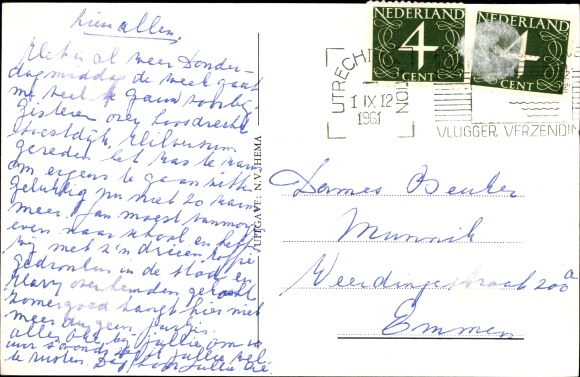 Lieve allen,
Het is al weer donder-
dagmiddag de week gaat
me veel te gauw voorbij
gisteren over Loosdrecht
Soestdijk, Hilversum
gereden het was te warm
om ergens te gaan zitten
gelukkig nu niet zo warm
meer. Jan moest vanmorgen
even naar school en heb
wij met z'n drieën koffie
gedronken in de stad en
overhemden gekocht
zomergoed hangt hier niet
meer dus geen
alles bij jullie, om
uur 's avonds jullie
te Dag hoor jullie
UITGAVE: N.V. HEMA
NEDERLAND
4
CENT
NEDERLAND
4
CENT
UTRECHT
STATION
1 IX 12
1961
VLUGGER VERZENDING
Dames Beuker
Munnik
Weerdingestraat 200a
Emmen